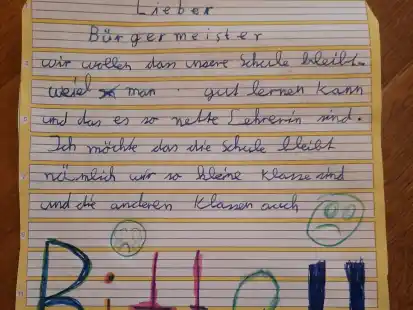 Lieber
Bürgermeister
wir wollen dass unsere Schule bleibt.
weiel man gut lernen kann
und das es so nette Lehrerin sind.
Ich möchte das die Schule bleibt
nämlich wir so kleine Klasse sind
und die anderen Klassen auch
Bitte!!